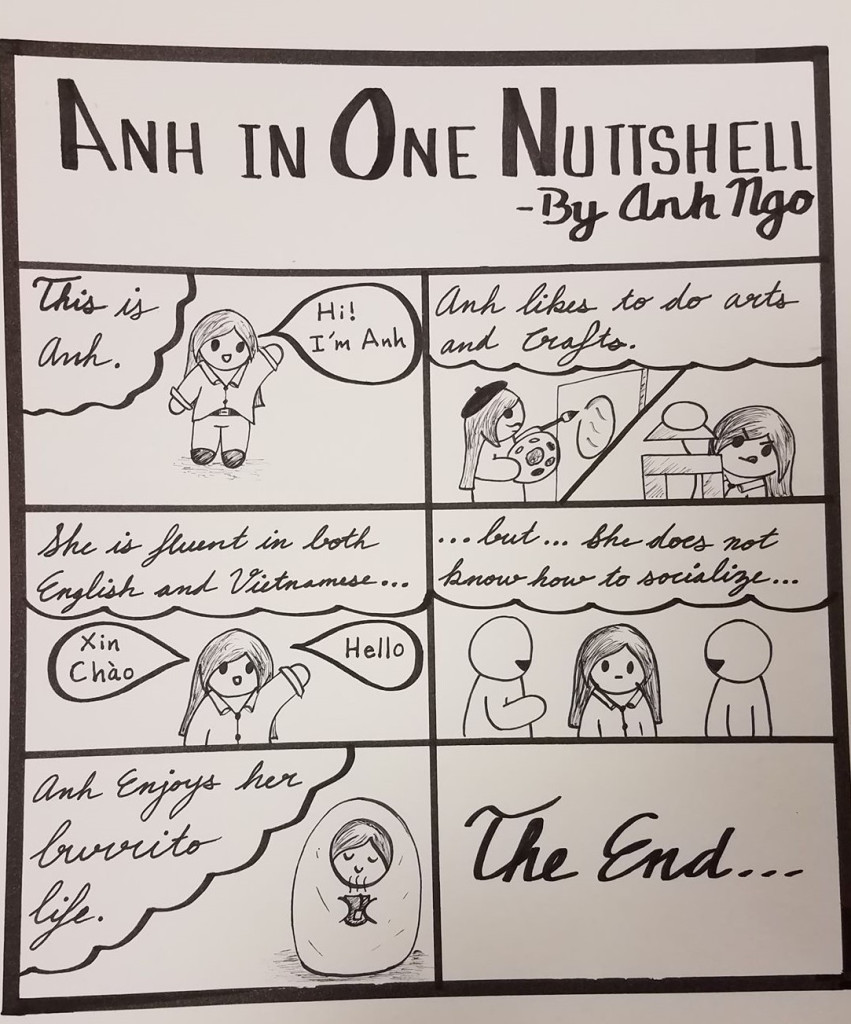 ANH IN ONE NUTTSHELL
-By Anh Ngo
This is
Anh.
Hi!
I'm Anh
Anh likes to do arts
and Crafts.
She is fluent in both
English and Vietnamese...
Xin
Chào
Hello
...but... She does not
know how to socialize...
Anh Enjoys her
burrito
life.
The End...